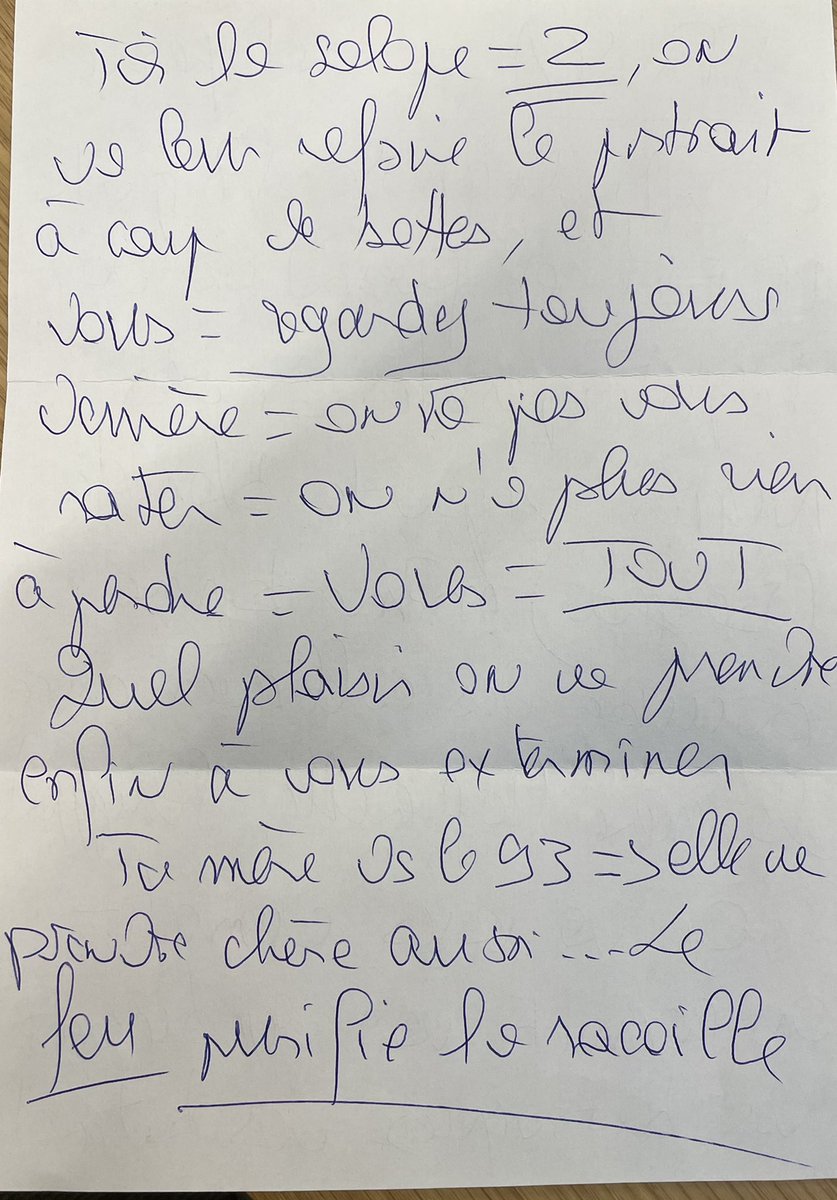 Toi la salope = 2, on
va leur refaire le portrait
à coup de bottes, et
vous = regardez toujours
derrière = on va pas vous
rater = on n'a plus rien
à perdre = Vous = TOUT
Quel plaisir on va prendre
enfin à vous exterminer
Ta mère ds le 93 = elle va
prendre chère aussi... Le
feu purifie la racaille